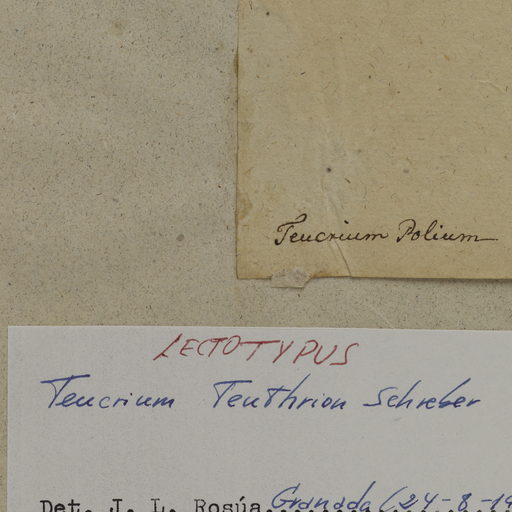 Teucrium Polium
LECTOTYPUS
Teucrium Teuthrion Schreber
Det. J. L. Rosúa Granada (24-8-19